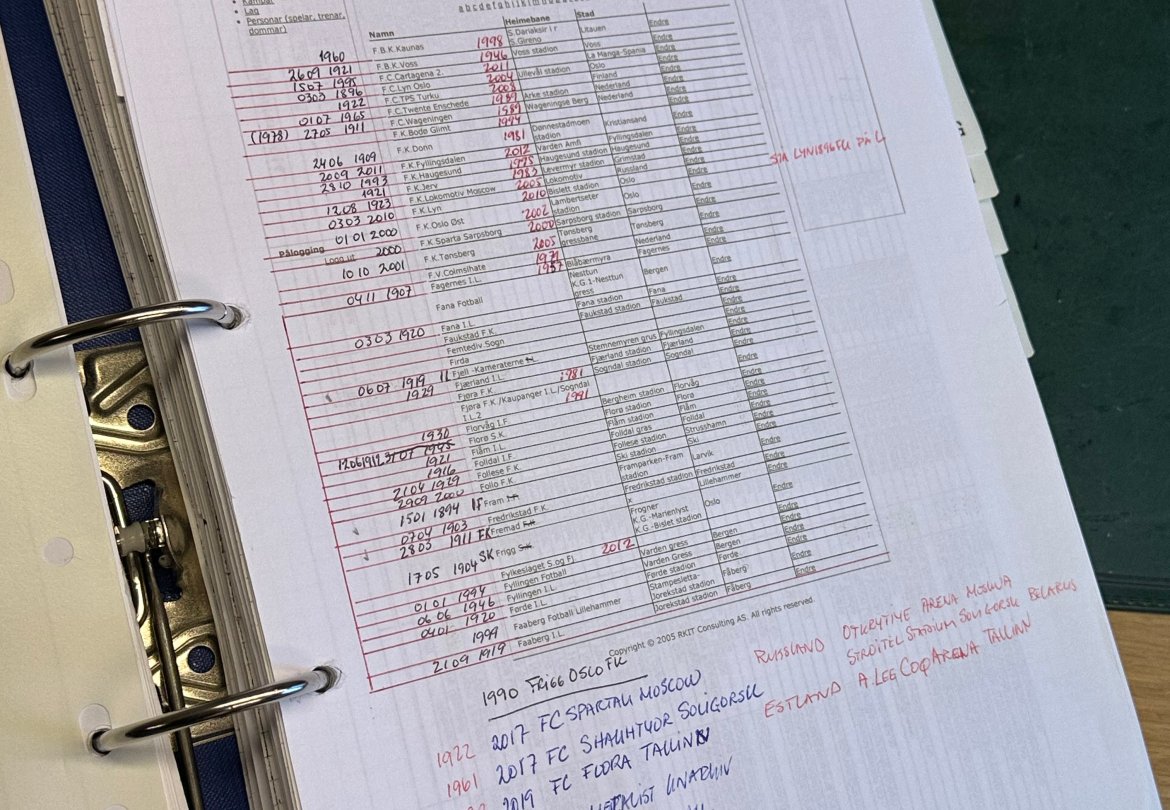 Lag
Personar (spelar, trenar,
dommar)
Namn Heimebane Stad
1960 F.B.K.Kaunas 1998 S.Dariaksir i r S.Gireno Litauen Endre
2609 1921 F.B.K.Voss 1946 Voss stadion Voss Endre
1507 1995 F.C.Cartagena 2. 2011 La Manga-Spania Endre
0303 1896 F.C.Lyn Oslo 2004 Ullevål stadion Oslo Endre
1922 F.C.TPS Turku 2008 Finland Endre
0107 1965 F.C.Twente Enschede 1989 Arke stadion Nederland Endre
F.C.Wageningen 1989 Wageningse Berg Nederland Endre
(1978) 2705 1911 F.K.Bodø Glimt 1994 Endre
F.K.Donn 1981 Dønnestadmoen stadion Kristiansand Endre
2406 1909 F.K.Fyllingsdalen 2012 Varden Amfi Fyllingsdalen Endre
2009 2011 F.K.Haugesund 1995 Haugesund stadion Haugesund Endre
2810 1993 F.K.Jerv 1983 Levermyr stadion Grimstad Endre
1921 F.K.Lokomotiv Moscow 2005 Lokomotiv Russland Endre
1208 1923 F.K.Lyn 2010 Bislett stadion Oslo Endre
0303 2010 F.K.Oslo Øst 2002 Lambertseter stadion Oslo Endre
0101 2000 F.K.Sparta Sarpsborg 2000 Sarpsborg stadion Sarpsborg Endre
Pålogging
Logg ut
2000 F.K.Tønsberg 2005 Tønsberg gressbane Tønsberg Endre
1010 2001 F.V.Colmslhate 1971 Nederland Endre
Fagernes I.L. 1957 Blåbærmyra Fagernes Endre
0411 1907 Fana Fotball Nesttun K.G.1-Nesttun gress Bergen Endre
Fana I.L. Fana stadion Fana Endre
0303 1920 Faukstad F.K. Faukstad stadion Faukstad Endre
Femtediv.Sogn Endre
Firda Endre
0607 1919 IL Fjell-Kameraterne Stemnemyren grus Fyllingsdalen Endre
1929 Fjærland I.L. Fjærland stadion Fjærland Endre
Fjøra F.K. 1981 Sogndal stadion Sogndal Endre
Fjøra F.K./Kaupanger I.L./Sogndal I.L.2 1991 Endre
Florvåg I.F. Bergheim stadion Florvåg Endre
1930 Florø S.K. Florø stadion Florø Endre
Flåm I.L. Flåm stadion Flåm Endre
1921 Folldal I.F. Folldal gras Folldal Endre
1916 Follese F.K. Follese stadion Strusshamn Endre
2104 1929 Follo F.K. Ski stadion Ski Endre
2909 2000
1501 1894 IF Fram Framparken-Fram stadion Larvik Endre
0704 1903 Fredrikstad F.K. Fredrikstad stadion Fredrikstad Endre
2803 1911 FK Fremad x Lillehammer Endre
1705 1904 SK Frigg Frogner K.G.-Marienlyst K.G.-Bislet stadion Oslo Endre
Fylkeslaget S.og Fj 2012 Endre
0101 1994 Fyllingen Fotball Varden gress Bergen Endre
0606 1946 Fyllingen I.L. Varden Gress Bergen Endre
0401 1920 Førde I.L. Førde stadion Førde Endre
1999 Faaberg Fotball Lillehammer Stampesletta-Jorekstad stadion Fåberg Endre
2109 1919 Faaberg I.L. Jorekstad stadion Fåberg Endre
LYN1896FK PÅ L
Copyright © 2005 RKIT Consulting AS. All rights reserved.
1990 FRIGG OSLO FK
1922 2017 FC SPARTAK MOSCOW RUSSLAND OTKRYTIYE ARENA MOSKVA
1961 2017 FC SHAKHTYOR SOLIGORSK STROITEL STADIUM SOLIGORSK BELARUS
2019 FC FLORA TALLINN ESTLAND A.LE COQ ARENA TALLINN